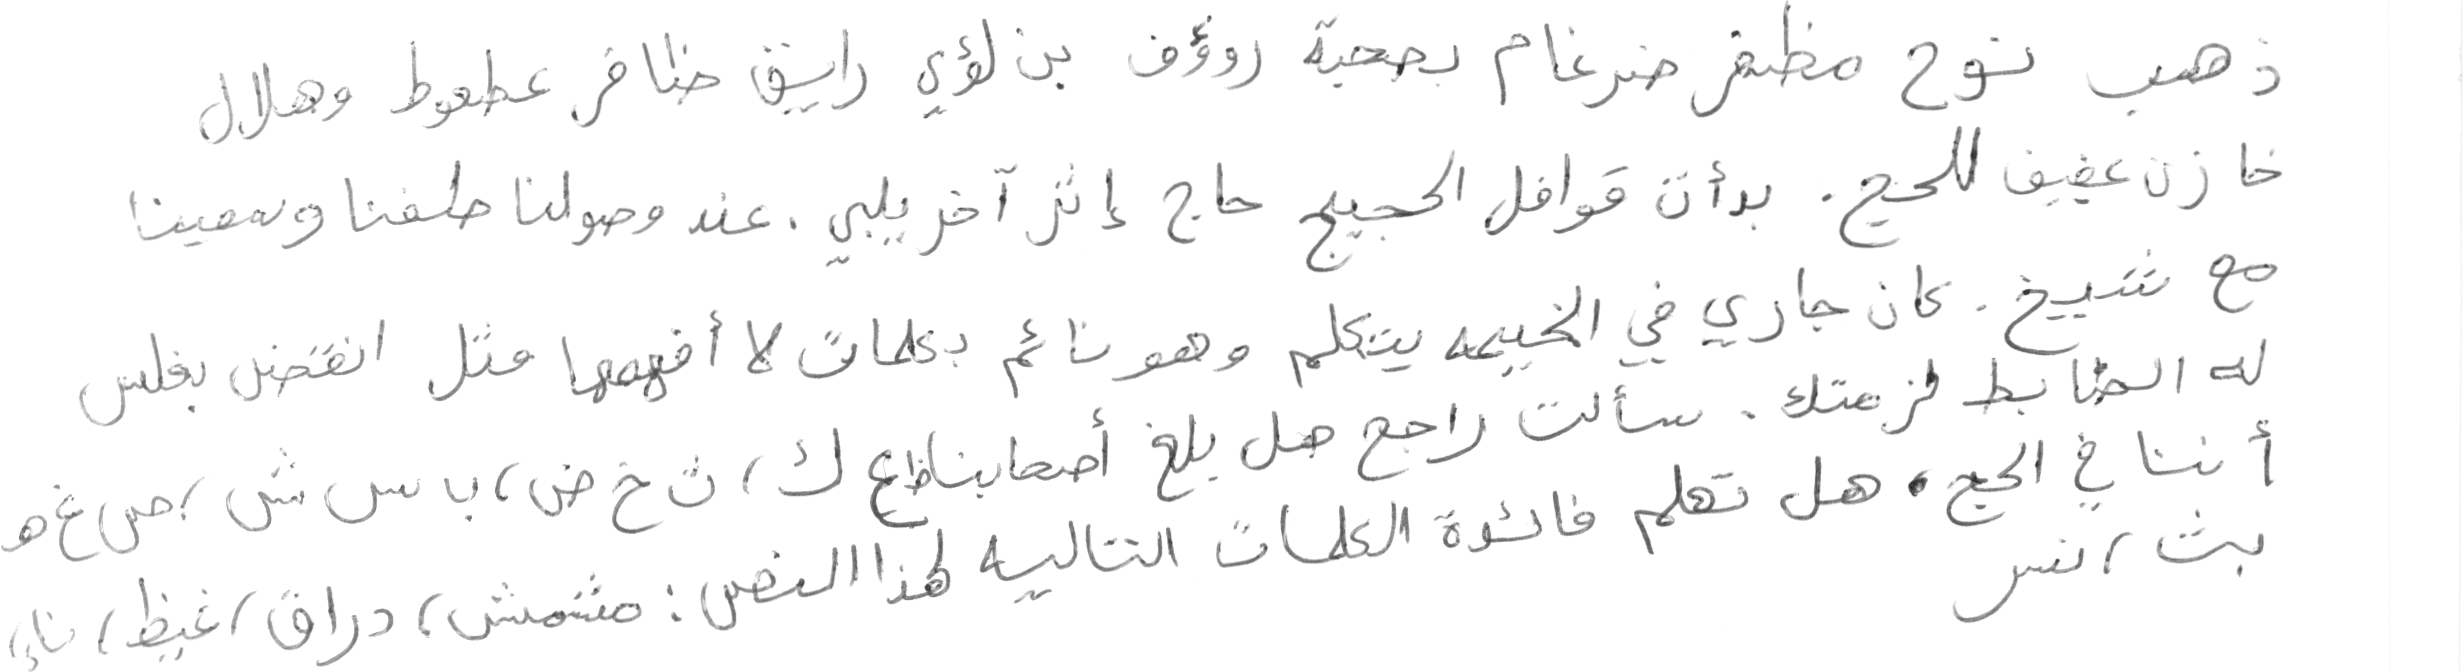 ذهب نوح مظفر ضرغام بصحبة رؤوف بن لؤي رايق ظافر عطعوط وهلال
خازن عفيف للحج. بدأت قوافل الحجيج حاج إثر آخر يلبي. عند وصولنا طفنا وسعينا
مع شيخ. كان جاري في الخيمه يتكلم وهو نائم بكلمات لا أفهمها مثل انقض بغلس
له الضابط لزمتك. سألت راجح هل بلغ أصحابنا ظ ع ك، ث خ ض، ب س ش، ص غ ه
أننا في الحج. هل تعلم فائدة الكلمات التاليه لهذا النص: مشمش، دراق، غيظ، ناي،
بث، نس